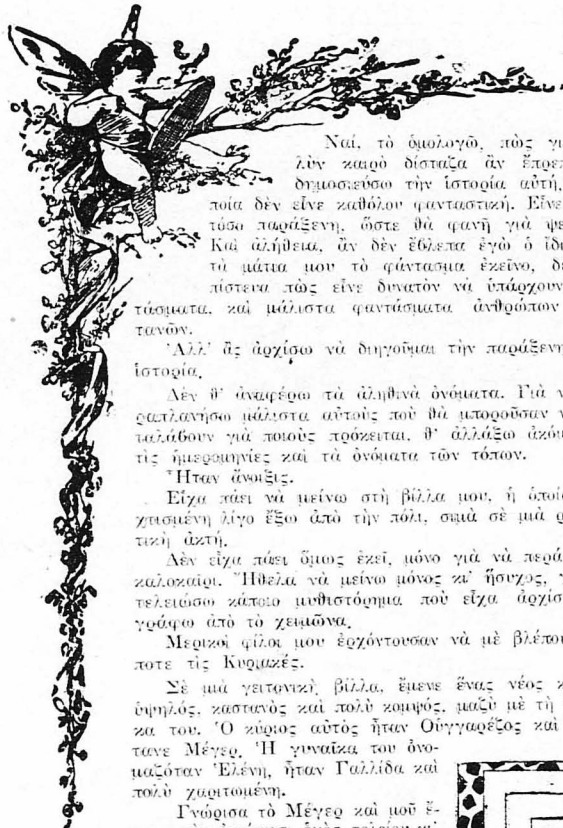 Ναί, τὸ ὁμολογῶ, πὼς γι
λὺν καιρὸ δίσταζα ἂν ἔπρε
δημοσιεύσω τὴν ἱστορία αὐτή,
ποία δὲν εἶνε καθόλου φανταστική. Εἶνε
τόσο παράξενη, ὥστε θὰ φανῇ γιὰ ψε
Καὶ ἀλήθεια, ἂν δὲν ἔβλεπα ἐγὼ ὁ ἴδι
τὰ μάτια μου τὸ φάντασμα ἐκεῖνο, δὲ
πίστευα πὼς εἶνε δυνατὸν νὰ ὑπάρχουν
τάσματα, καὶ μάλιστα φαντάσματα ἀνθρώπων
τανῶν.
Ἀλλ' ἂς ἀρχίσω νὰ διηγοῦμαι τὴν παράξενη
ἱστορία.
Δὲν θ' ἀναφέρω τὰ ἀληθινὰ ὀνόματα. Γιὰ ν
ραπλανήσω μάλιστα αὐτοὺς ποὺ θὰ μποροῦσαν ν
ταλάβουν γιὰ ποιοὺς πρόκειται, θ' ἀλλάξω ἀκόμ
τὶς ἡμερομηνίες καὶ τὰ ὀνόματα τῶν τόπων.
Ἦταν ἄνοιξις.
Εἶχα πάει νὰ μείνω στὴ βίλλα μου, ἡ ὁποί
χτισμένη λίγο ἔξω ἀπὸ τὴν πόλι, σιμὰ σὲ μιὰ ρ
τικὴ ἀκτή.
Δὲν εἶχα πάει ὅμως ἐκεῖ, μόνο γιὰ νὰ περά
καλοκαῖρι. Ἤθελα νὰ μείνω μόνος κι' ἥσυχος, γ
τελειώσω κάποιο μυθιστόρημα ποὺ εἶχα ἀρχίσ
γράφω ἀπὸ τὸ χειμῶνα.
Μερικοὶ φίλοι μου ἐρχόντουσαν νὰ μὲ βλέπου
ποτε τὶς Κυριακές.
Σὲ μιὰ γειτονικὴ βίλλα, ἔμενε ἕνας νέος κ
ὑψηλός, καστανὸς καὶ πολὺ κομψός, μαζὺ μὲ τὴ
κα του. Ὁ κύριος αὐτὸς ἦταν Οὑγγαρέζος καὶ
τανε Μέγερ. Ἡ γυναῖκα του ὀνο-
μαζόταν Ἑλένη, ἦταν Γαλλίδα καὶ
πολὺ χαριτωμένη.
Γνώρισα τὸ Μέγερ καὶ μοῦ ἔ-